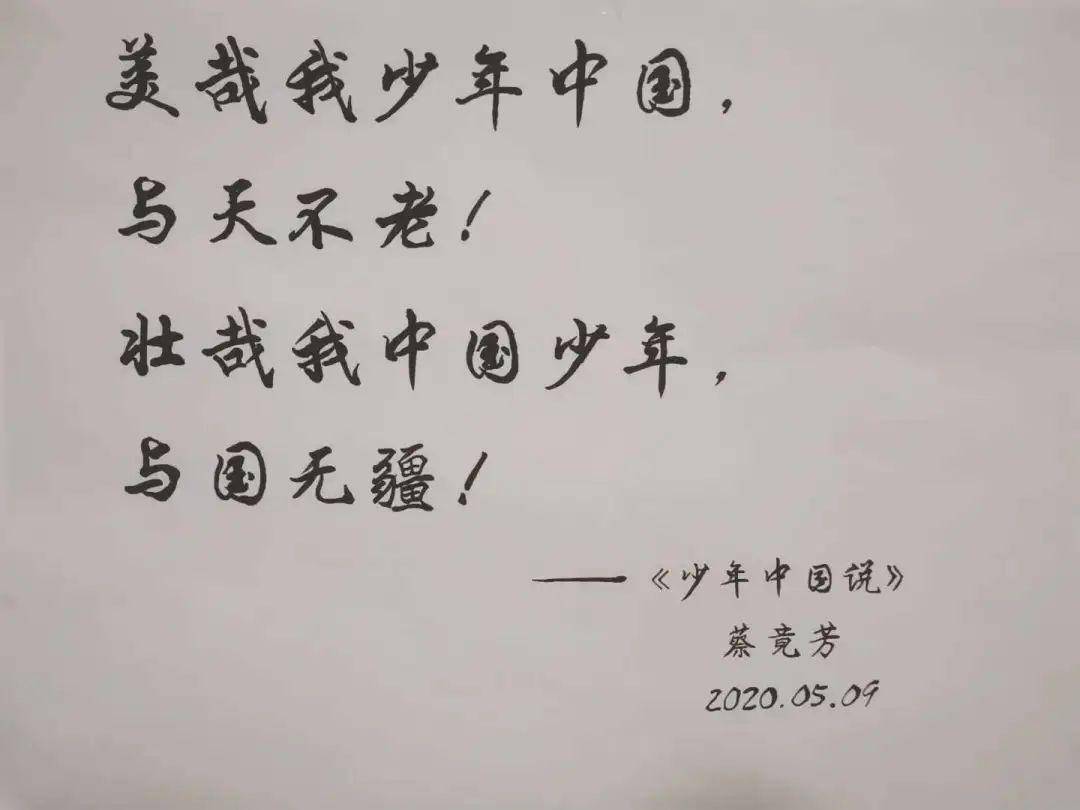 美哉我少年中国，
与天不老！
壮哉我中国少年，
与国无疆！
——《少年中国说》
蔡竟芳
2020.05.09